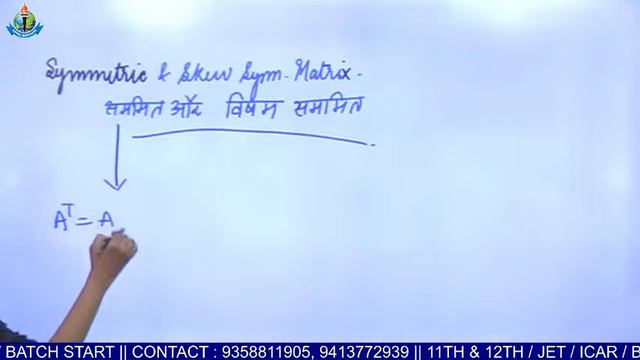 Symmetric & Skew Sym. Matrix.
सममित और विषम सममित
Aᵀ = A
BATCH START || CONTACT : 9358811905, 9413772939 || 11TH & 12TH / JET / ICAR / B